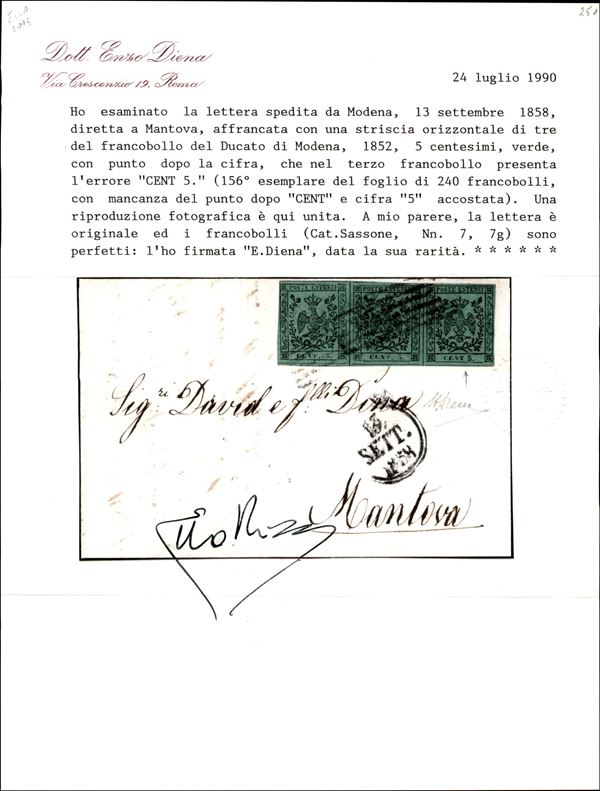 250
Dott. Enzo Diena
Via Crescenzio 19, Roma
24 luglio 1990
Ho esaminato la lettera spedita da Modena, 13 settembre 1858,
diretta a Mantova, affrancata con una striscia orizzontale di tre
del francobollo del Ducato di Modena, 1852, 5 centesimi, verde,
con punto dopo la cifra, che nel terzo francobollo presenta
l'errore "CENT 5." (156° esemplare del foglio di 240 francobolli,
con mancanza del punto dopo "CENT" e cifra "5" accostata). Una
riproduzione fotografica è qui unita. A mio parere, la lettera è
originale ed i francobolli (Cat.Sassone, Nn. 7, 7g) sono
perfetti: l'ho firmata "E.Diena", data la sua rarità. * * * * * *
POSTE ESTENSI POSTE ESTENSI POSTE ESTENSI
CENT. 5. CENT. 5. CENT 5.
Sig.ri David e f.lli Dina
13
SETT.
1858
Mantova